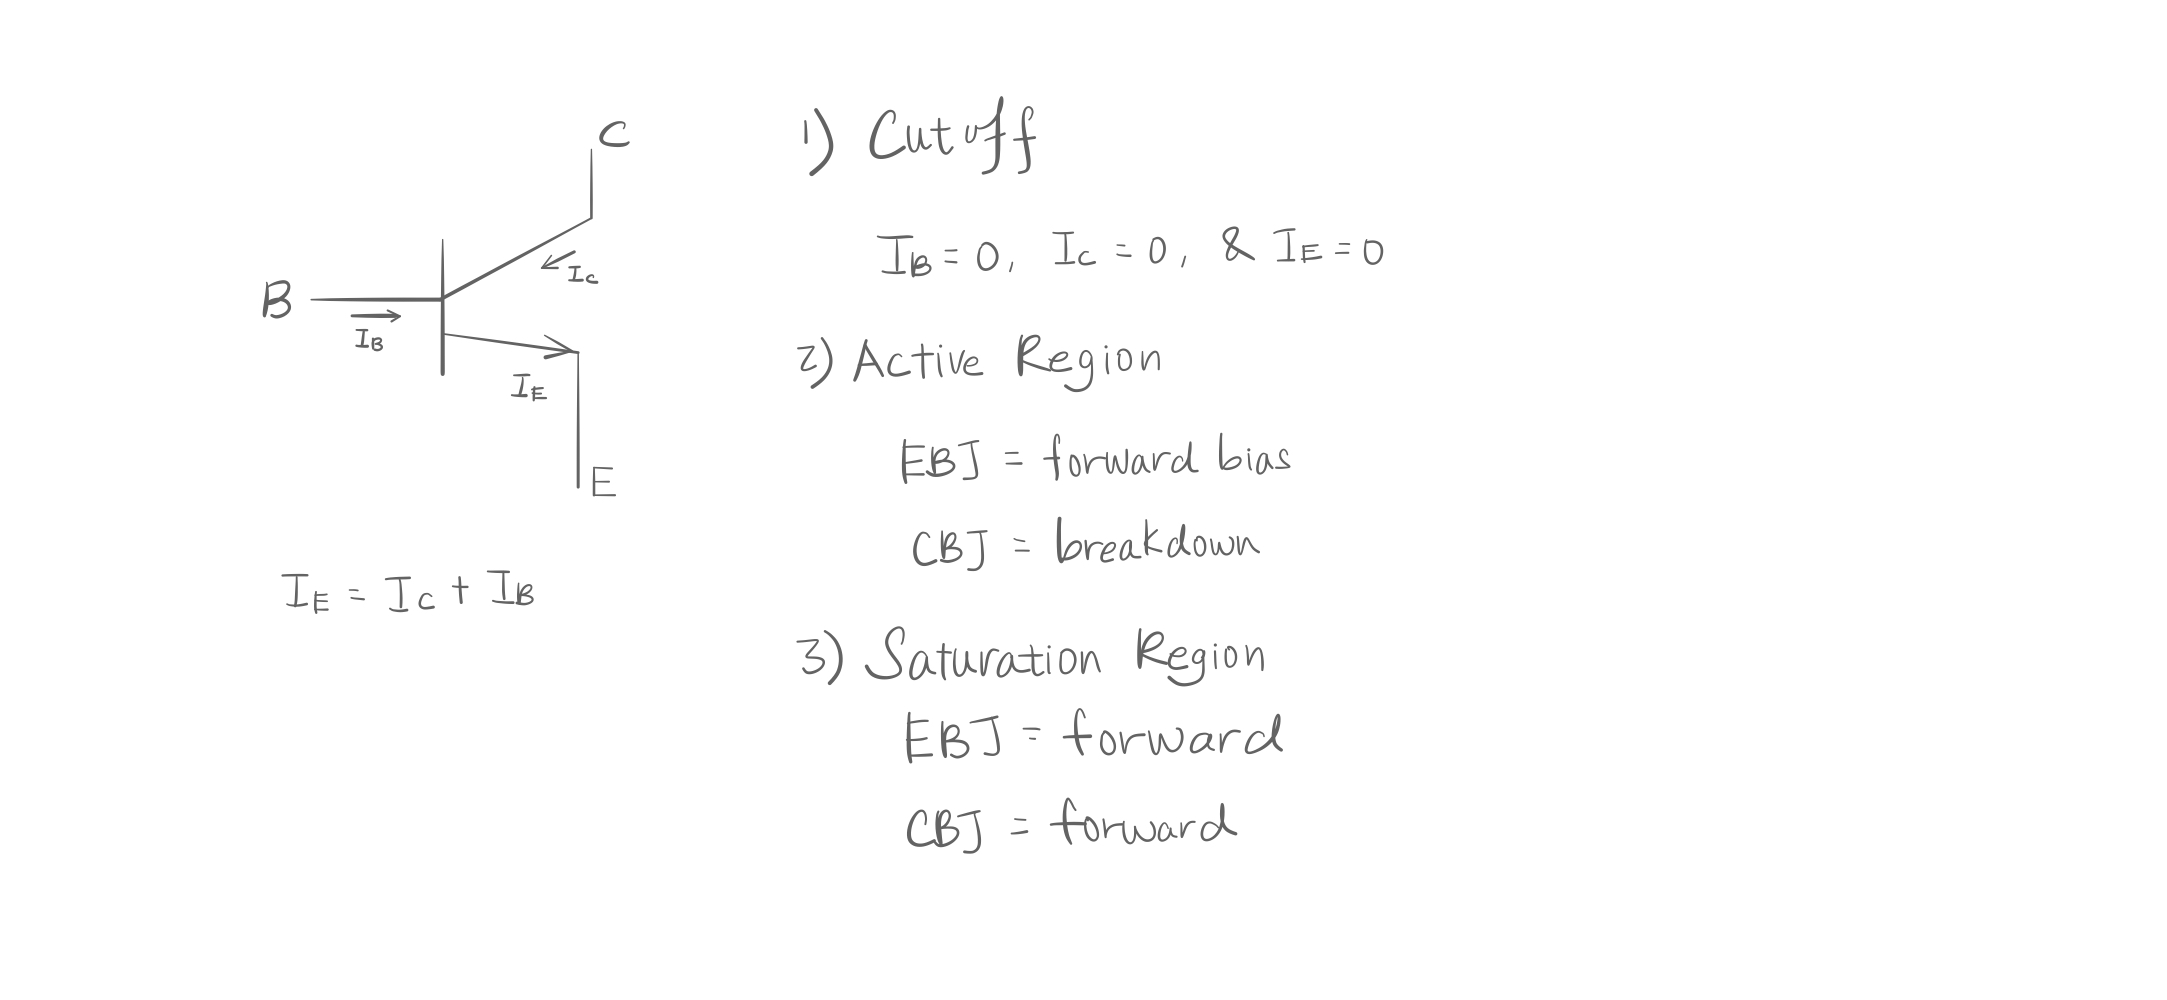 C
B
I_C
I_B
I_E
E
I_E = I_C + I_B
1) Cutoff
I_B = 0, I_C = 0, & I_E = 0
2) Active Region
EBJ = forward bias
CBJ = breakdown
3) Saturation Region
EBJ = forward
CBJ = forward